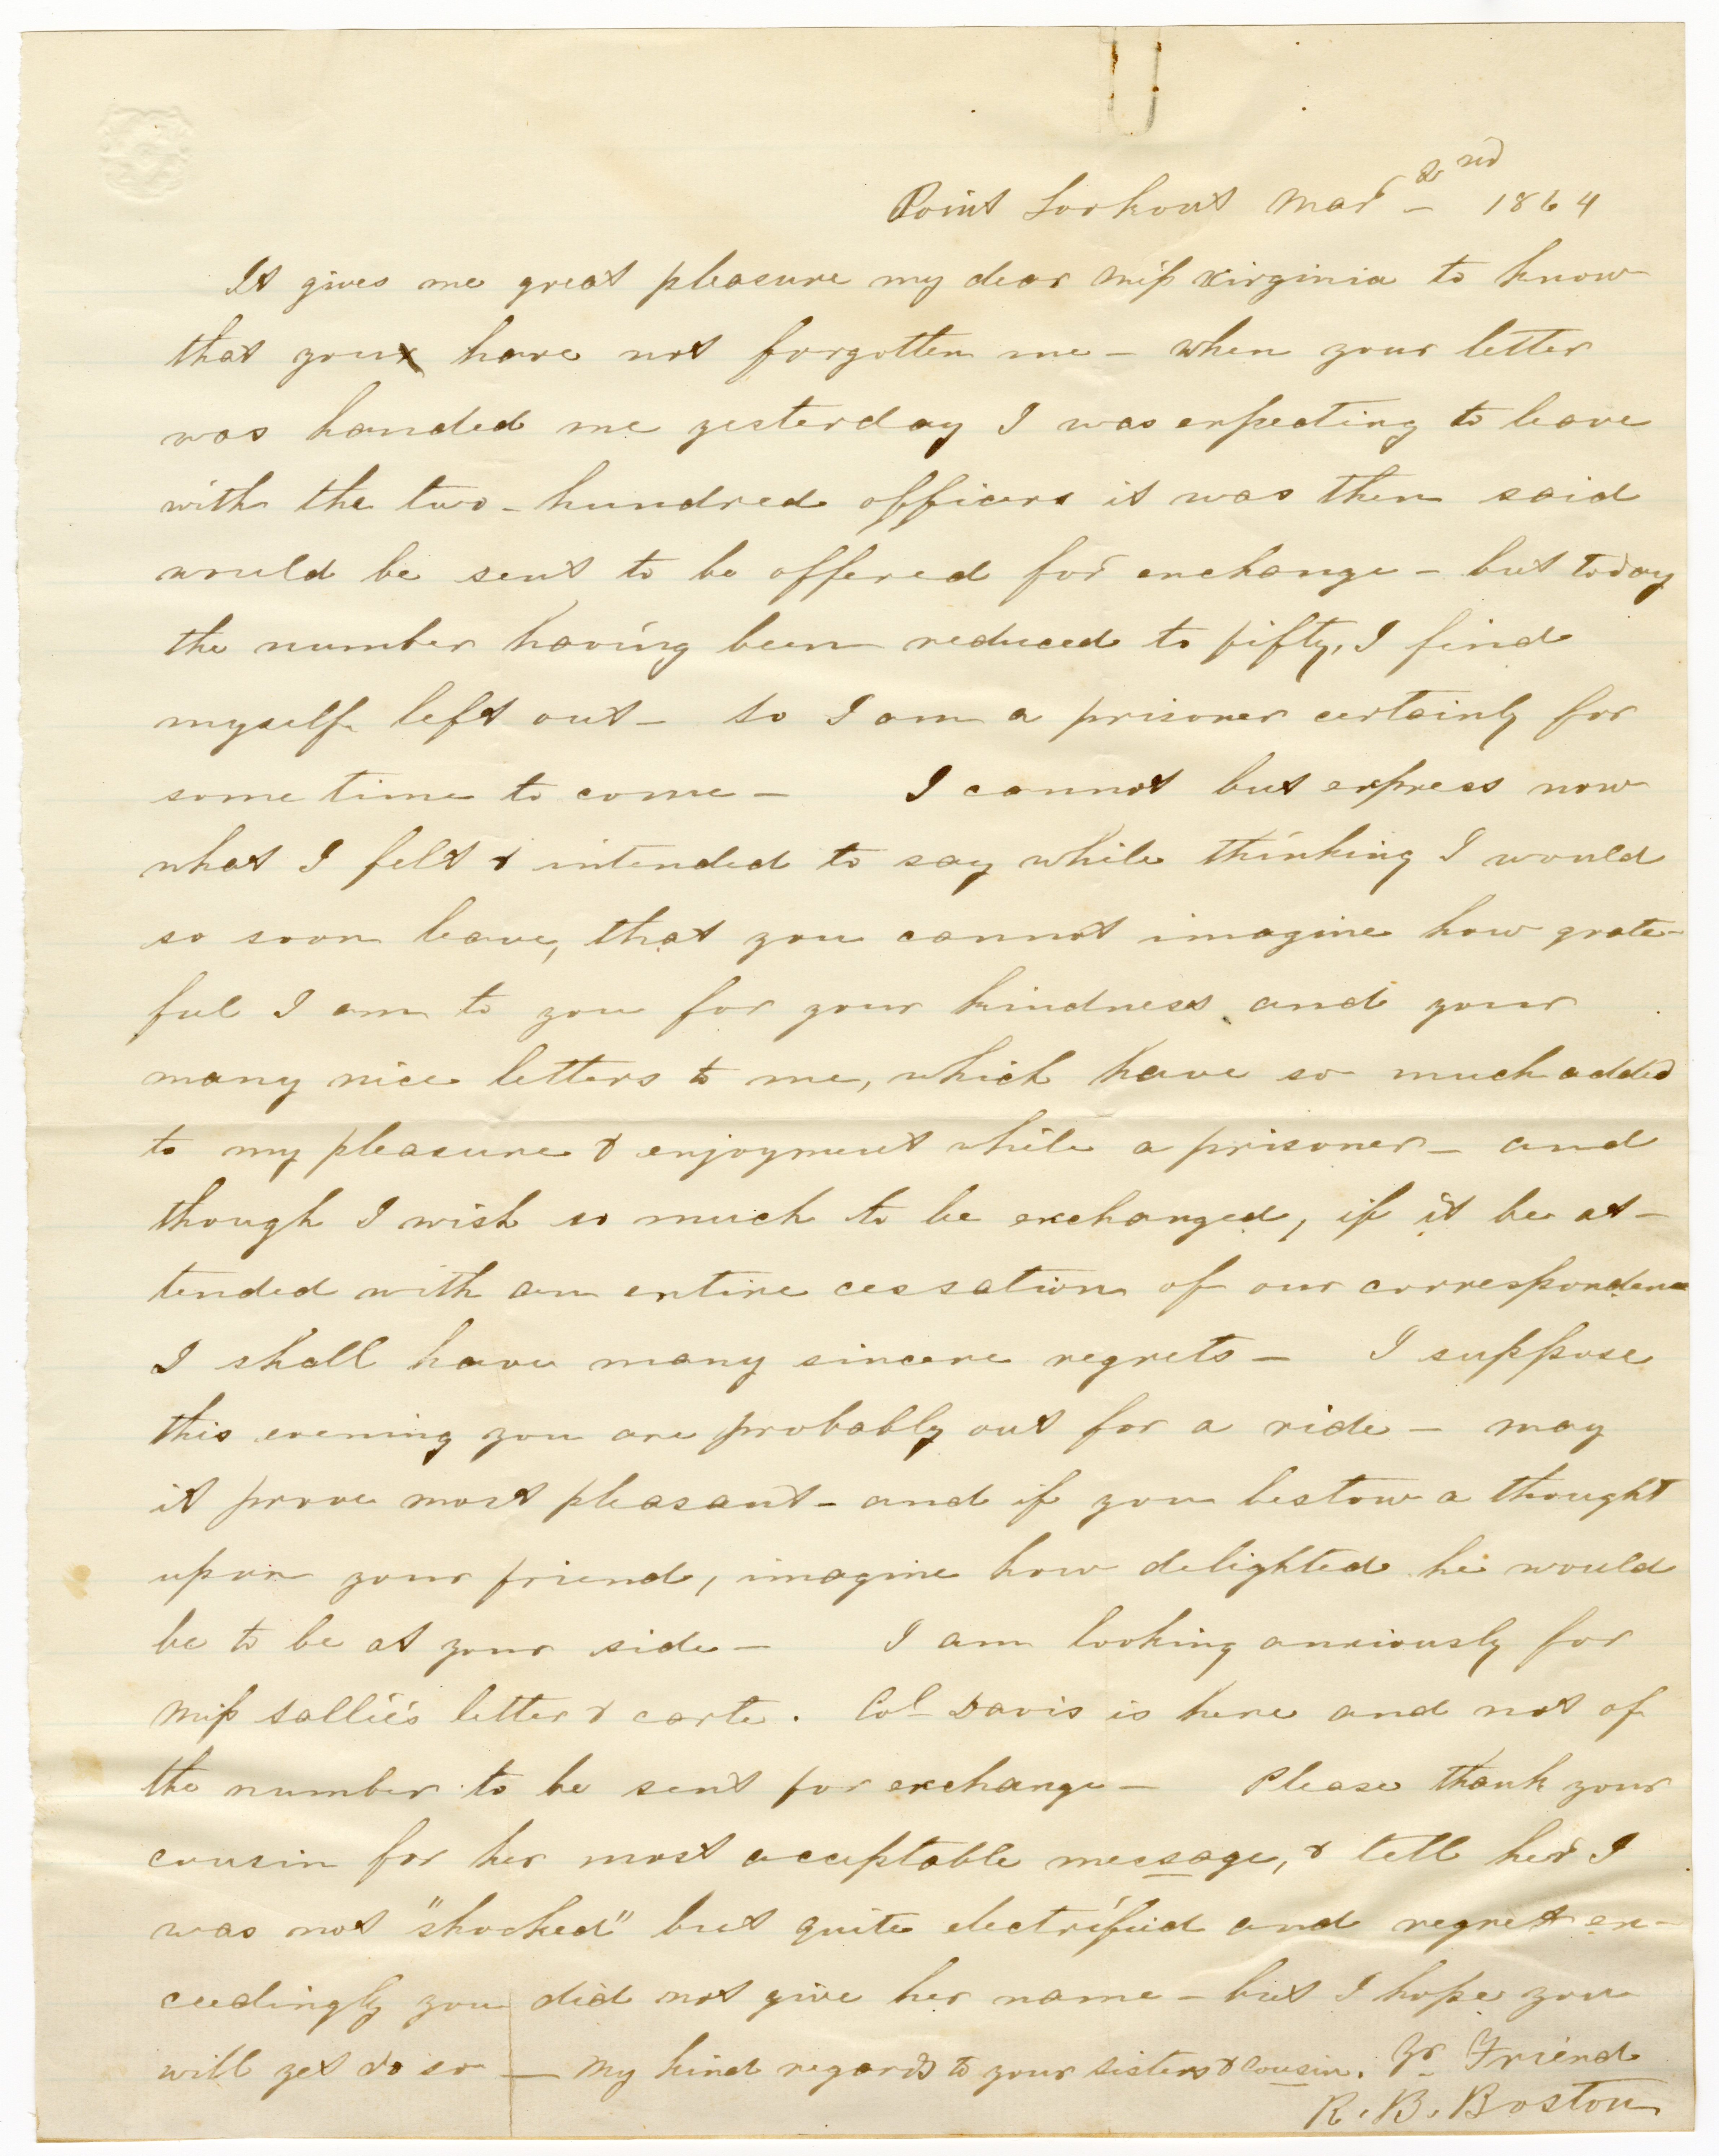 Point Lookout Mar 2nd 1864
It gives me great pleasure my dear Miss Virginia to know
that you have not forgotten me – when your letter
was handed me yesterday I was expecting to leave
with the two-hundred officers it was then said
would be sent to be offered for exchange – but today
the number having been reduced to fifty, I find
myself left out – so I am a prisoner certainly for
some time to come – I cannot but express now
what I felt & intended to say while thinking I would
so soon leave, that you cannot imagine how grate-
ful I am to you for your kindness and your
many nice letters to me, which have so much added
to my pleasure & enjoyment while a prisoner – and
though I wish so much to be exchanged, if it be at-
tended with an entire cessation of our correspondence
I shall have many sincere regrets – I suppose
this evening you are probably out for a ride – may
it prove most pleasant – and if you bestow a thought
upon your friend, imagine how delighted he would
be to be at your side – I am looking anxiously for
Miss Sallie's letter & carte. Col Davis is here and not of
the number to be sent for exchange – Please thank your
cousin for her most acceptable message, & tell her I
was not "shocked" but quite electrified and regret ex-
ceedingly you did not give her name – but I hope you
will yet do so – My kind regards to your sisters & cousin. Yr Friend
R. B. Boston